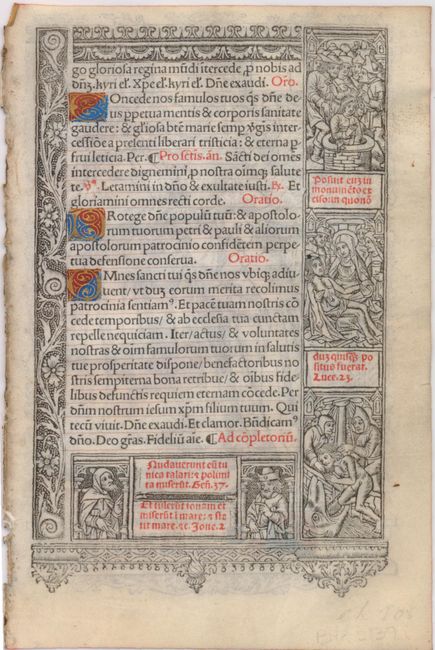 go gloriosa regina mūdi ītercede ꝓ nobis ad
dn̄ꝫ. kyri el̄. Xpe el̄. kyri el̄. Dn̄e exaudi. Oro.
COncede nos famulos tuos q̄s dn̄e de
us ppetua mentis & corporis sanitate
gaudere: & gl̄iosa btē marie semp v̄gīs in
tercessiōe a presenti liberari tristicia: & eterna ꝑ
frui leticia. Per. ¶ Pro sctīs. añ. Sācti dei omes
intercedere dignemini ꝓ nostra oīmqꝫ salute
te. ℣. Letamini in dn̄o & exultate iusti. ℟. Et
gloriamini omnes recti corde. Oratio.
PRotege dn̄e populū tuū: & apostolo-
rum tuorum petri & pauli & aliorum
apostolorum patrocinio confidētem perpe
tua defensione conserua. Oratio.
OMnes sancti tui q̄s dn̄e nos vbiqꝫ adiu
uent/ vt dūꝫ eorum merita recolimus
patrocinia sentiamꝰ. Et pacē tuam nostris cō
cede temporibus/ & ab ecclesia tua cunctam
repelle nequiciam. Iter/ actus/ & voluntates
nostras & oīm famulorum tuorum in salutis
tue prosperitate dispone/ benefactoribus no
stris sempiterna bona retribue/ & oībus fide
libus defunctis requiem eternam cōcede. Per
dn̄m nostrum iesum xpm filium tuum. Qui
tecū viuit. Dn̄e exaudi. Et clamor. Bn̄dicamꝰ
dn̄o. Deo gr̄as. Fideliū aīe. ¶ Ad cōpletoriū.
Posuit euꝫ in
monumēto ex
ciso: in quo nō
duꝫ quisqꝫ po
situs fuerat.
Luce. 23.
Nudauerunt eū tu
nica talari: & polimi
ta miserūt. Gen̄. 37.
Et tulerūt ionam et
miserūt ī mare: & ste
tit mare. ⁊c. Jone. 2